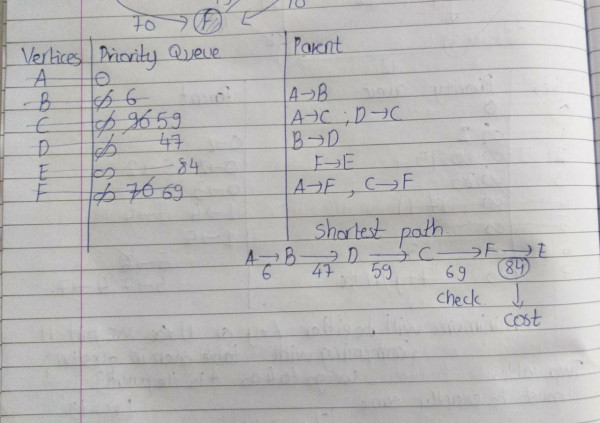 70 → F
Vertices Priority Queue Parent
A 0
B ∞ 6 A→B
C ∞ 96 59 A→C , D→C
D ∞ 47 B→D
E ∞ 84 F→E
F ∞ 70 69 A→F , C→F
Shortest path
A → B → D → C → F → E
6 47 59 69 84
check ↓
cost